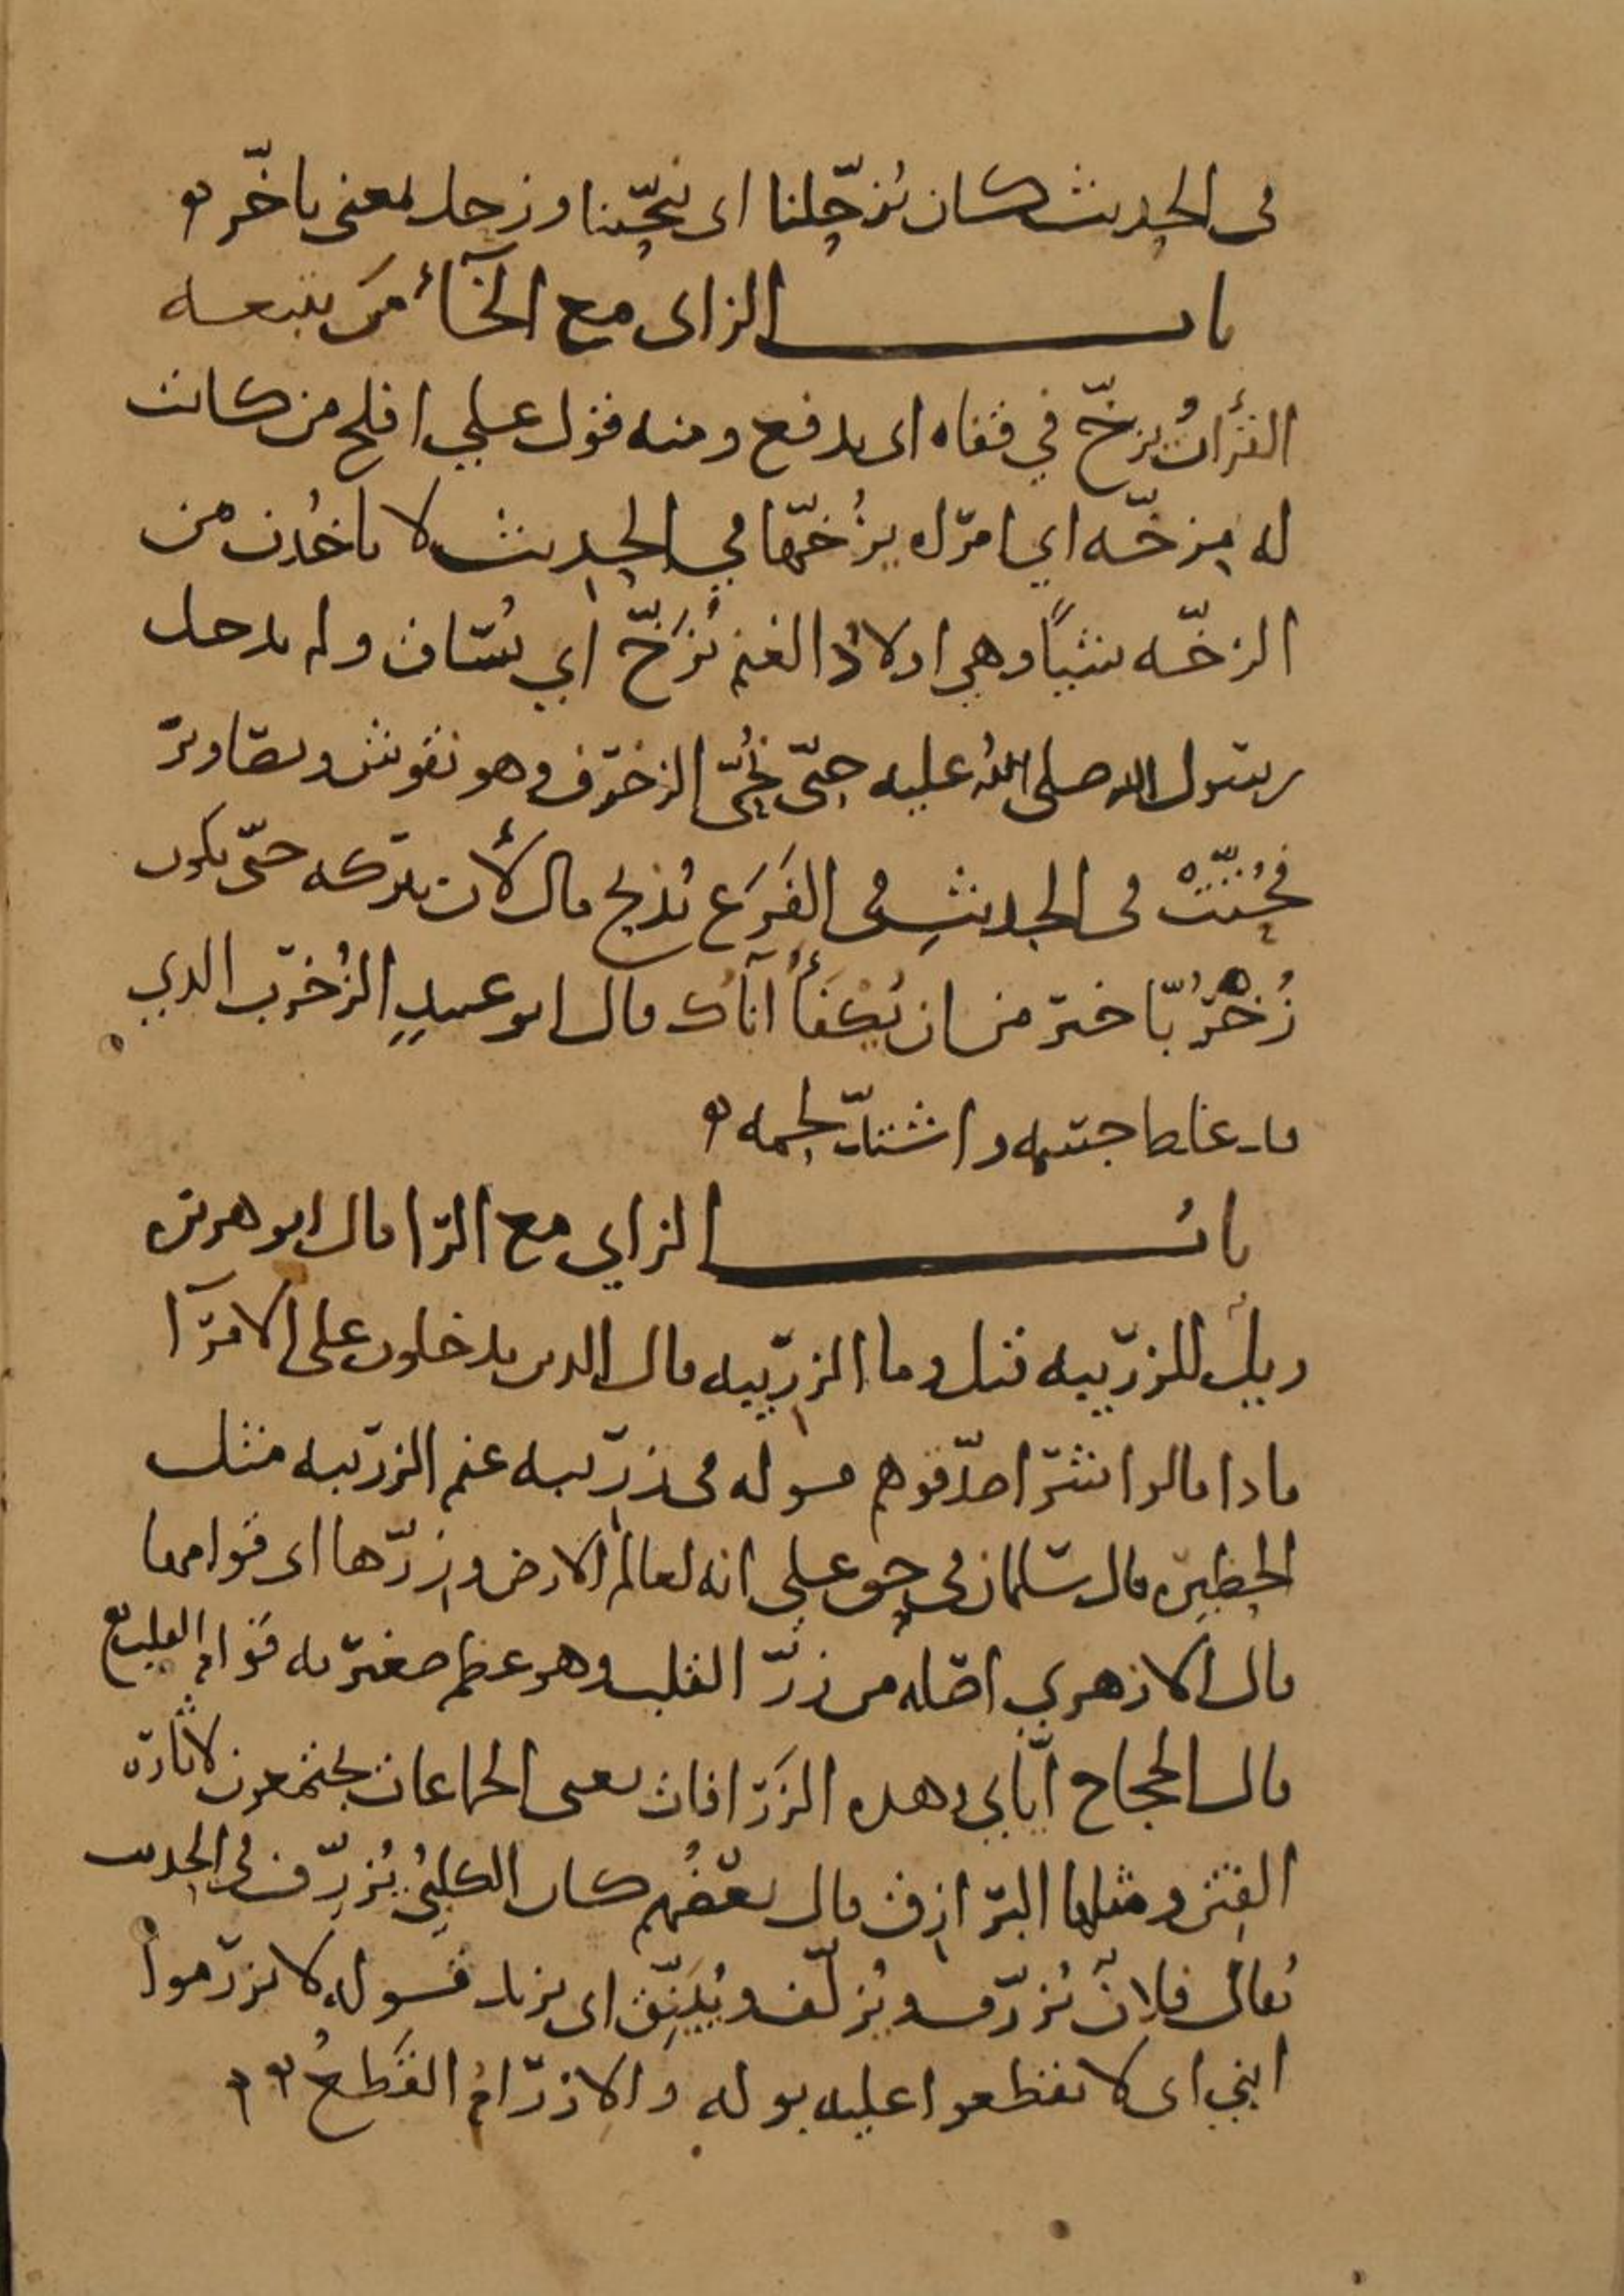 في الحديث كان يزحّلنا اي ينحّينا وزحل بمعنى تاخّر
باب الزاى مع الخآء من يتبعه
القرأنُ يزخّ في قفاه اى يدفع ومنه قول علي افلح من كانت
له مِزخّه اي امرّاه يزُخّها في الحديث لا تاخُذن من
الزخّه شيئًا وهي اولادُ الغنم تُزَخّ اي تُسَاق ولم يدخل
رسول الله صلى اللهُ عليه حتّى نُحّى الزخرف وهو نقوش وتصاوير
في الحديث في الفَرَع يُذبح قال لأن يتركه حتّى يكون
زُخْرُبّا خير من ان تكفأ اناك قال ابو عبيدٍ الزُخرب الذي
قد غلظ جسمه واشتدّ لحمه
بابُ الزاي مع الرا قال ابو هريره
ويلٌ للزربيه قيل وما الزِربيه قال الذين يدخلون على الامرآ
فاذا قالوا شرا صدّقوهم قوله في زِربيه غنم الزربيه مثل
الحظيره قال سلمان في حق علي انه لعالم الارض وزِرّها اى قوامها
قال الازهري اصله من زِرّ القلب وهو عظم صغير به قوام القلب
قال الحجاج اياي وهذه الزَرافات يعنى الجماعات يجتمعون لاثاره
الفتن ومثلها البرازق قال بعضُهم كان الكلبيُ يُزرِّف في الحديث
يُقال فلانٌ يُزرّف ويُزلّف ويُبَنِّق اى يزيد قوله لا تزرموا
ابني اى لا تقطعوا عليه بوله والاِزرامُ القَطعُ